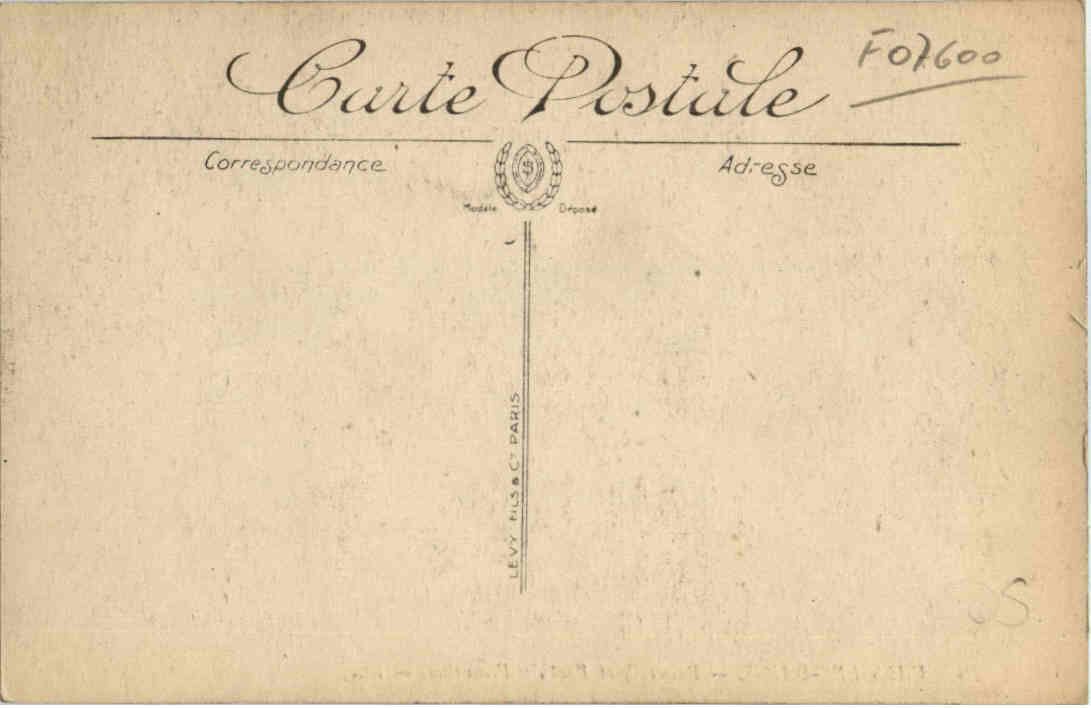 Carte Postale
F07600
Correspondance
Adresse
Modèle Déposé
LEVY FILS & Cie PARIS